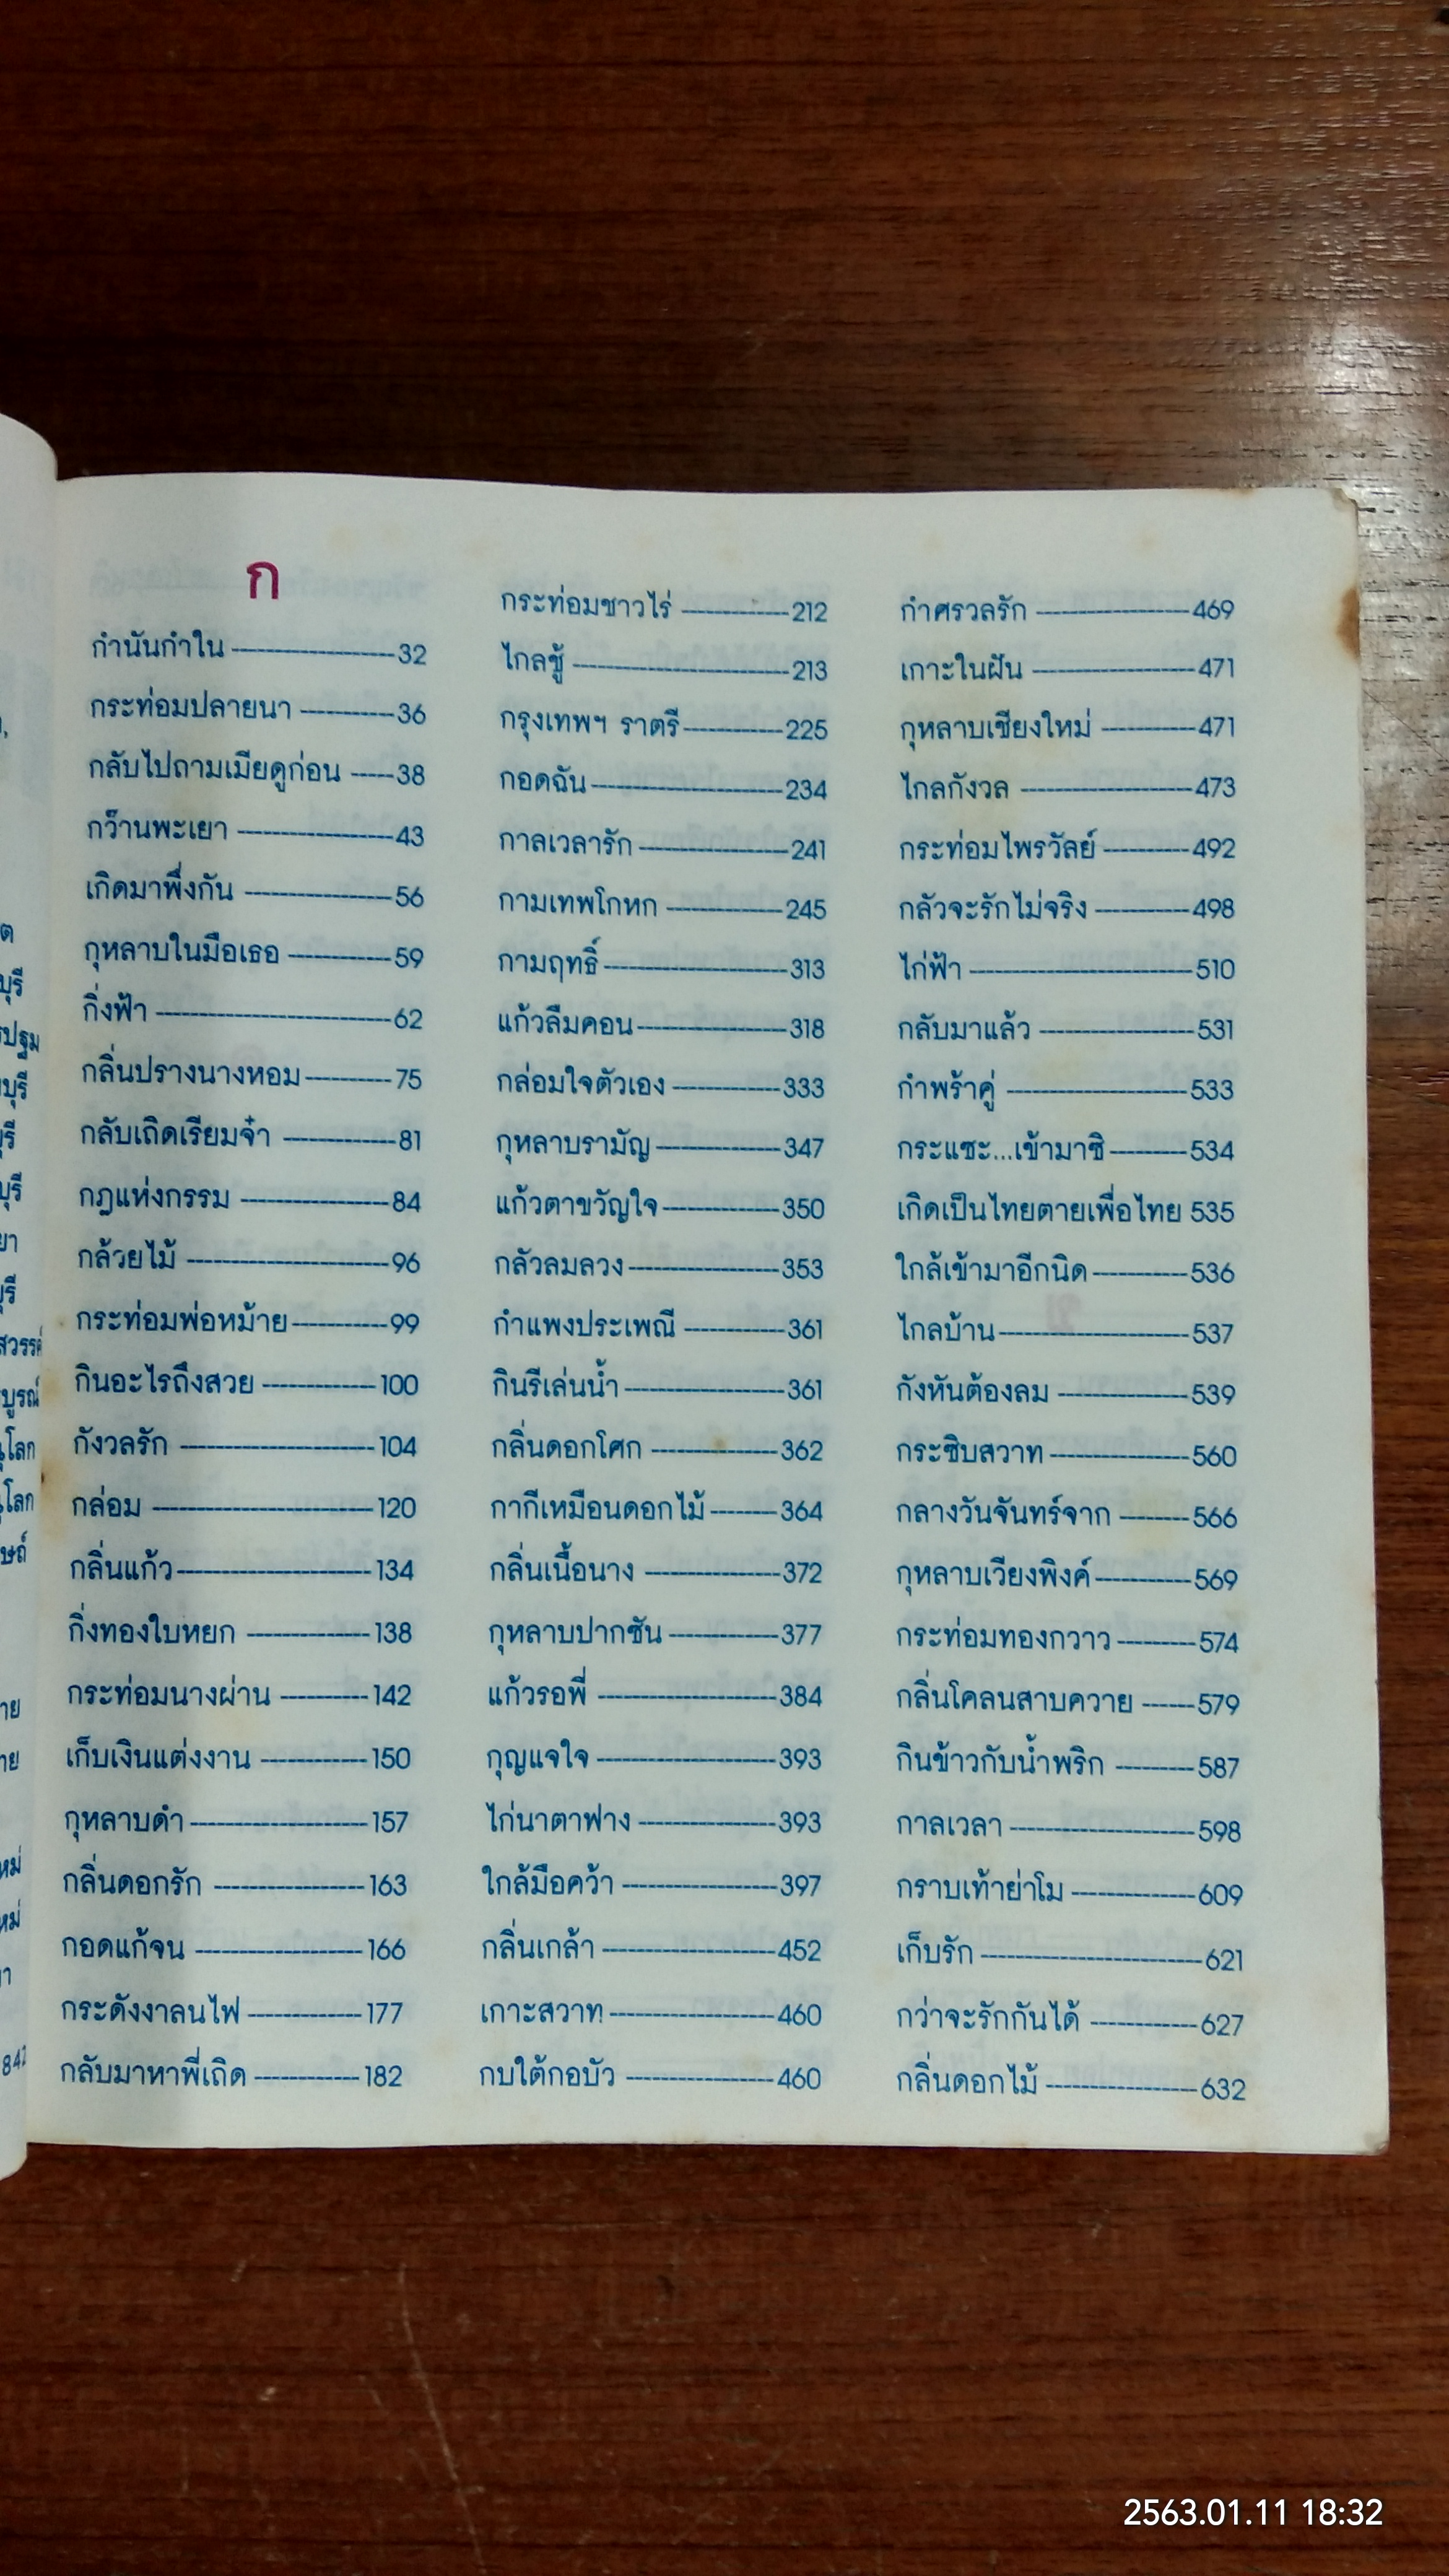 ก
กำนันกำใน 32
กระท่อมปลายนา 36
กลับไปถามเมียดูก่อน 38
กว๊านพะเยา 43
เกิดมาพึ่งกัน 56
กุหลาบในมือเธอ 59
กิ่งฟ้า 62
กลิ่นปรางนางหอม 75
กลับเถิดเรียมจ๋า 81
กฎแห่งกรรม 84
กล้วยไม้ 96
กระท่อมพ่อหม้าย 99
กินอะไรถึงสวย 100
กังวลรัก 104
กล่อม 120
กลิ่นแก้ว 134
กิ่งทองใบหยก 138
กระท่อมนางผ่าน 142
เก็บเงินแต่งงาน 150
กุหลาบดำ 157
กลิ่นดอกรัก 163
กอดแก้จน 166
กระดังงาลนไฟ 177
กลับมาหาพี่เถิด 182
กระท่อมชาวไร่ 212
ไกลชู้ 213
กรุงเทพฯ ราตรี 225
กอดฉัน 234
กาลเวลารัก 241
กามเทพโกหก 245
กามฤทธิ์ 313
แก้วลืมคอน 318
กล่อมใจตัวเอง 333
กุหลาบรามัญ 347
แก้วตาขวัญใจ 350
กลัวลมลวง 353
กำแพงประเพณี 361
กินรีเล่นน้ำ 361
กลิ่นดอกโศก 362
กากีเหมือนดอกไม้ 364
กลิ่นเนื้อนาง 372
กุหลาบปากซัน 377
แก้วรอพี่ 384
กุญแจใจ 393
ไก่นาตาฟาง 393
ใกล้มือคว้า 397
กลิ่นเกล้า 452
เกาะสวาท 460
กบใต้กอบัว 460
กำศรวลรัก 469
เกาะในฝัน 471
กุหลาบเชียงใหม่ 471
ไกลกังวล 473
กระท่อมไพรวัลย์ 492
กลัวจะรักไม่จริง 498
ไก่ฟ้า 510
กลับมาแล้ว 531
กำพร้าคู่ 533
กระแซะ...เข้ามาซิ 534
เกิดเป็นไทยตายเพื่อไทย 535
ใกล้เข้ามาอีกนิด 536
ไกลบ้าน 537
กังหันต้องลม 539
กระซิบสวาท 560
กลางวันจันทร์จาก 566
กุหลาบเวียงพิงค์ 569
กระท่อมทองกวาว 574
กลิ่นโคลนสาบควาย 579
กินข้าวกับน้ำพริก 587
กาลเวลา 598
กราบเท้าย่าโม 609
เก็บรัก 621
กว่าจะรักกันได้ 627
กลิ่นดอกไม้ 632
2563.01.11 18:32